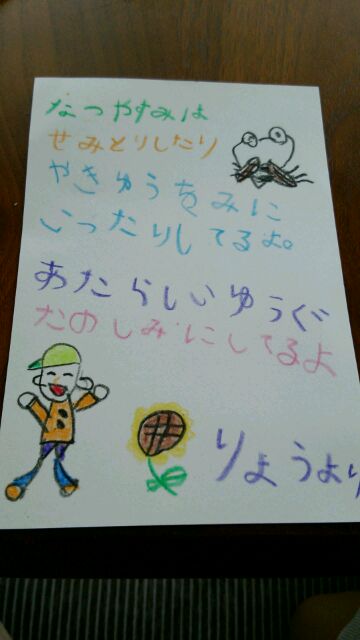 なつやすみは
せみとりしたり
やきゅうをみに
いったりしてるよ。
あたらしいゆうぐ
たのしみにしてるよ
りょうより